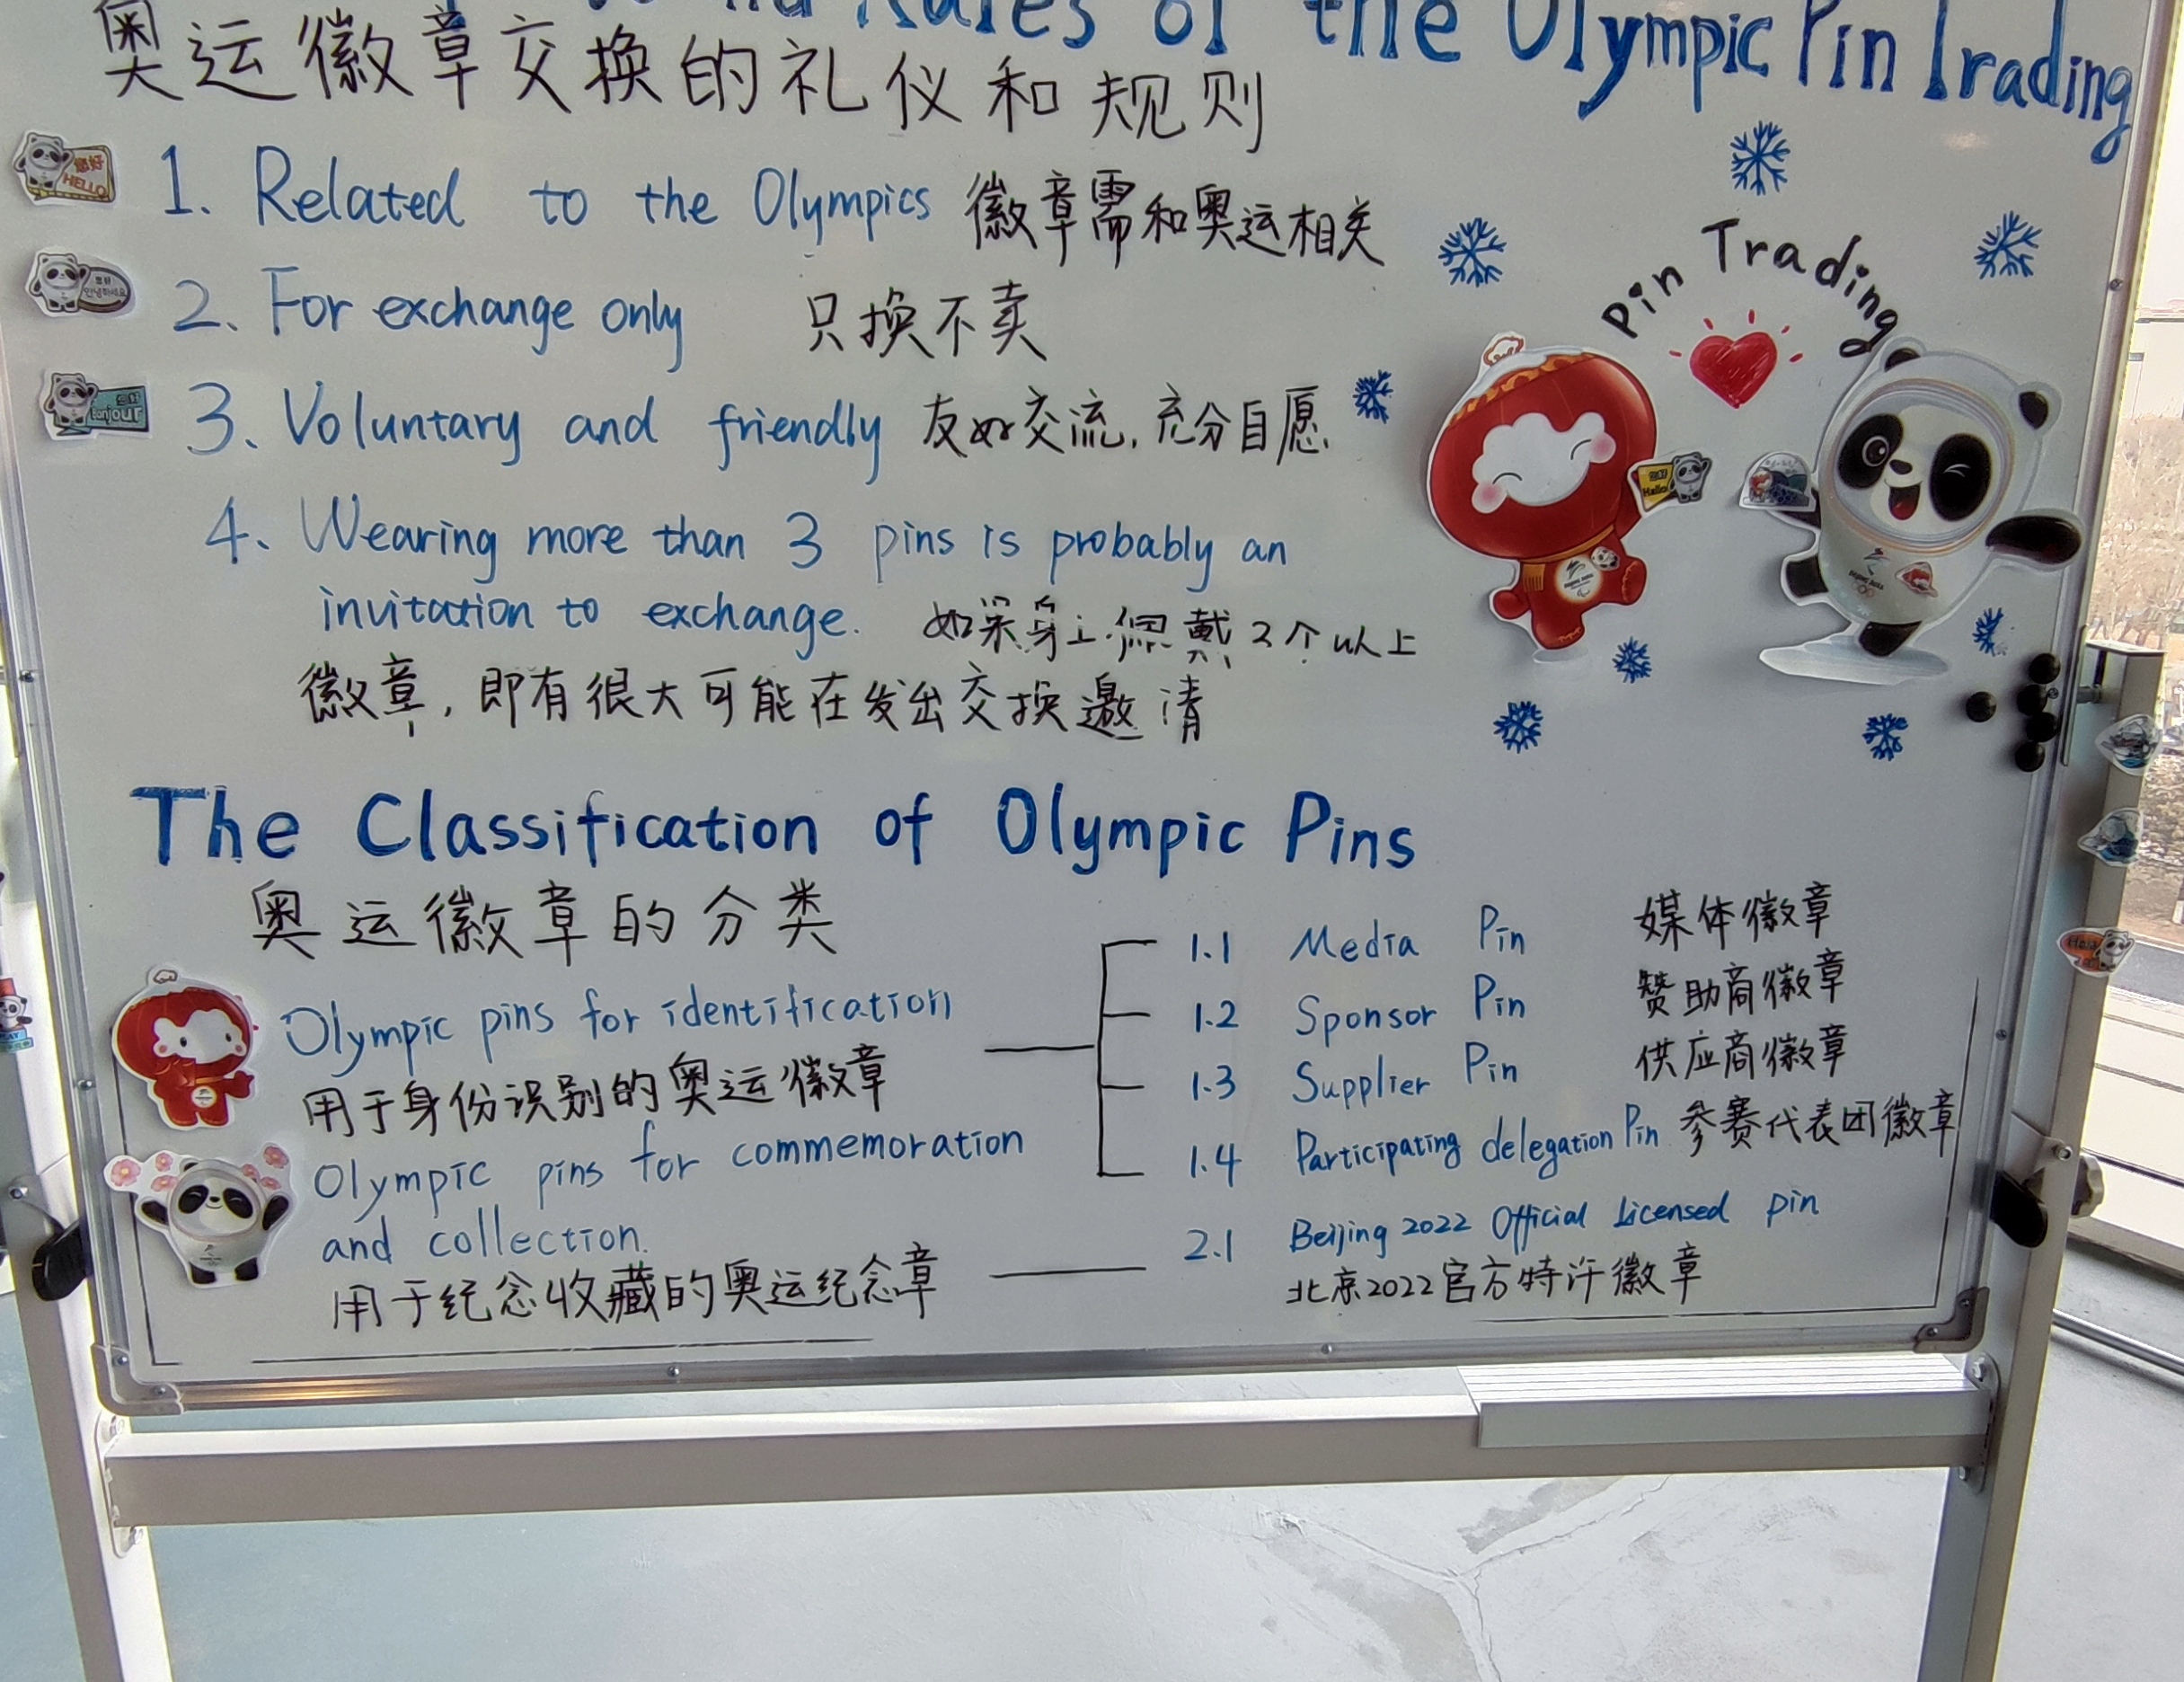 Rules of the Olympic Pin Trading
奥运徽章交换的礼仪和规则
1. Related to the Olympics 徽章需和奥运相关
2、For exchange only 只换不卖
3、Voluntary and friendly 友好交流,充分自愿
4、Wearing more than 3 pins is probably an
invitation to exchange. 如果身上佩戴3个以上
徽章,即有很大可能在发出交换邀请
Pin Trading
您好
HELLO
안녕하세요
Bonjour
Hello
The Classification of Olympic Pins
奥运徽章的分类
Olympic pins for identification
用于身份识别的奥运徽章
1.1 Media Pin 媒体徽章
1.2 Sponsor Pin 赞助商徽章
1.3 Supplier Pin 供应商徽章
1.4 Participating delegation Pin 参赛代表团徽章
Olympic pins for commemoration
and collection.
用于纪念收藏的奥运纪念章
2.1 Beijing 2022 Official Licensed pin
北京2022官方特许徽章